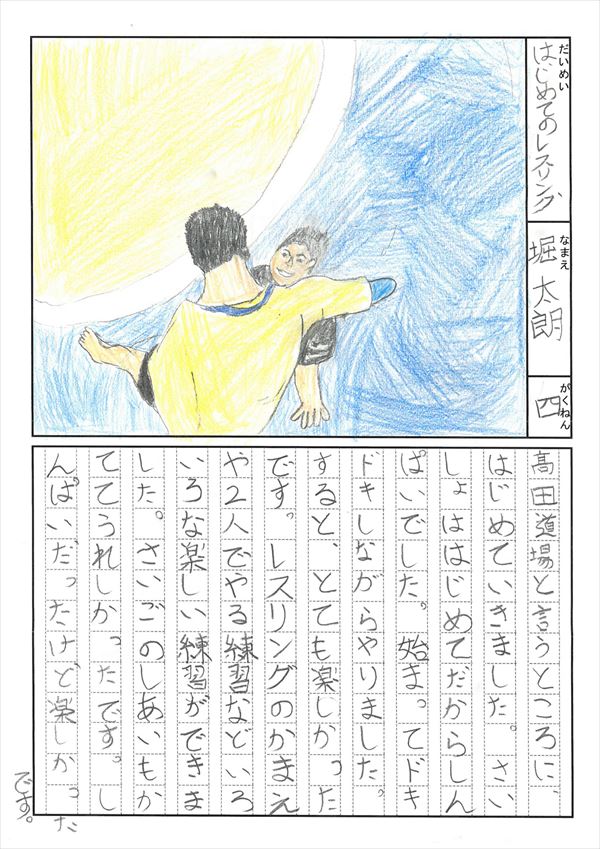 だいめい
はじめてのレスリング
なまえ
堀太朗
がくねん
四
高田道場と言うところに、
はじめていきました。さい
しょははじめてだからしん
ぱいでした。始まってドキ
ドキしながらやりました。
すると、とても楽しかった
です。レスリングのかまえ
や2人でやる練習などいろ
いろな楽しい練習ができま
した。さいごのしあいもか
ててうれしかったです。し
んぱいだったけど楽しかった
です。